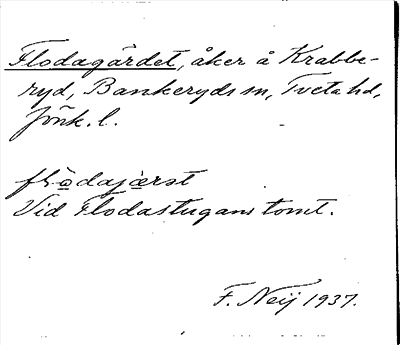 Flodagärdet, åker å Krabbe-
ryd, Bankeryds sn, Tveta hd,
Jönk. l.
flodajærst
Vid Flodastugans tomt.
F. Neij 1937.